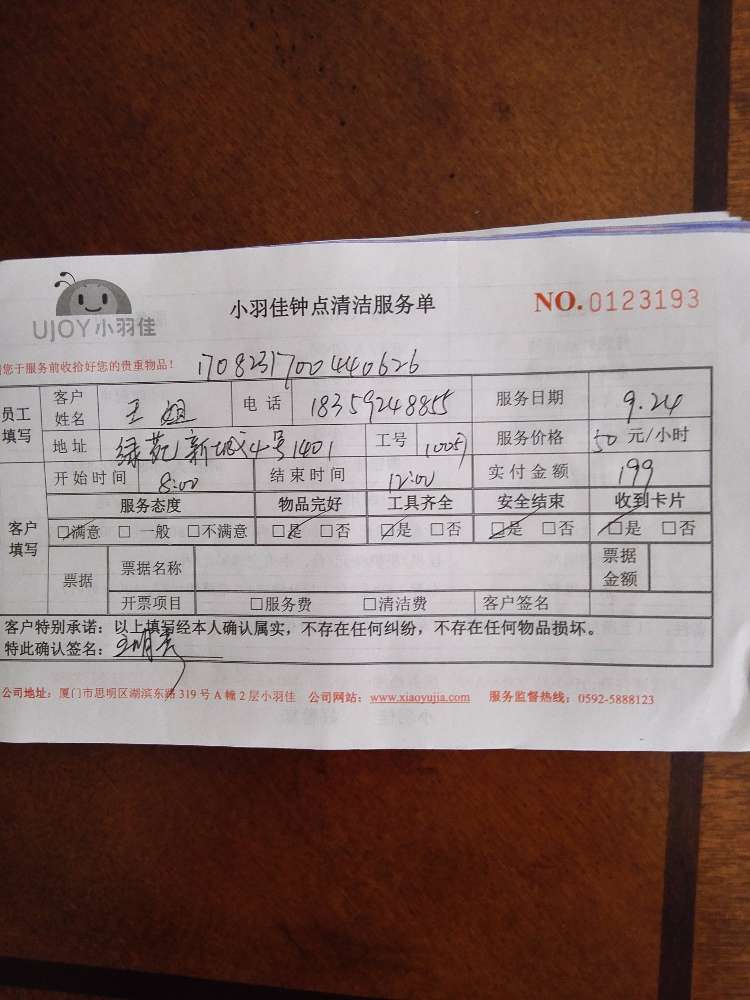 UJOY小羽佳
小羽佳钟点清洁服务单
NO.0123193
您于服务前收拾好您的贵重物品！
170823170044062​6
员工填写 客户姓名 王姐 电话 18359248855 服务日期 9.24
地址 绿苑新城4号1401 工号 10057 服务价格 50 元/小时
开始时间 8:00 结束时间 12:00 实付金额 199
客户填写 服务态度 物品完好 工具齐全 安全结束 收到卡片
☑满意 □一般 □不满意 ☑是 □否 ☑是 □否 ☑是 □否 ☑是 □否
票据 票据名称 票据金额
开票项目 □服务费 □清洁费 客户签名
客户特别承诺：以上填写经本人确认属实，不存在任何纠纷，不存在任何物品损坏。
特此确认签名：
公司地址：厦门市思明区湖滨东路319号A幢2层小羽佳 公司网站：www.xiaoyujia.com 服务监督热线：0592-5888123